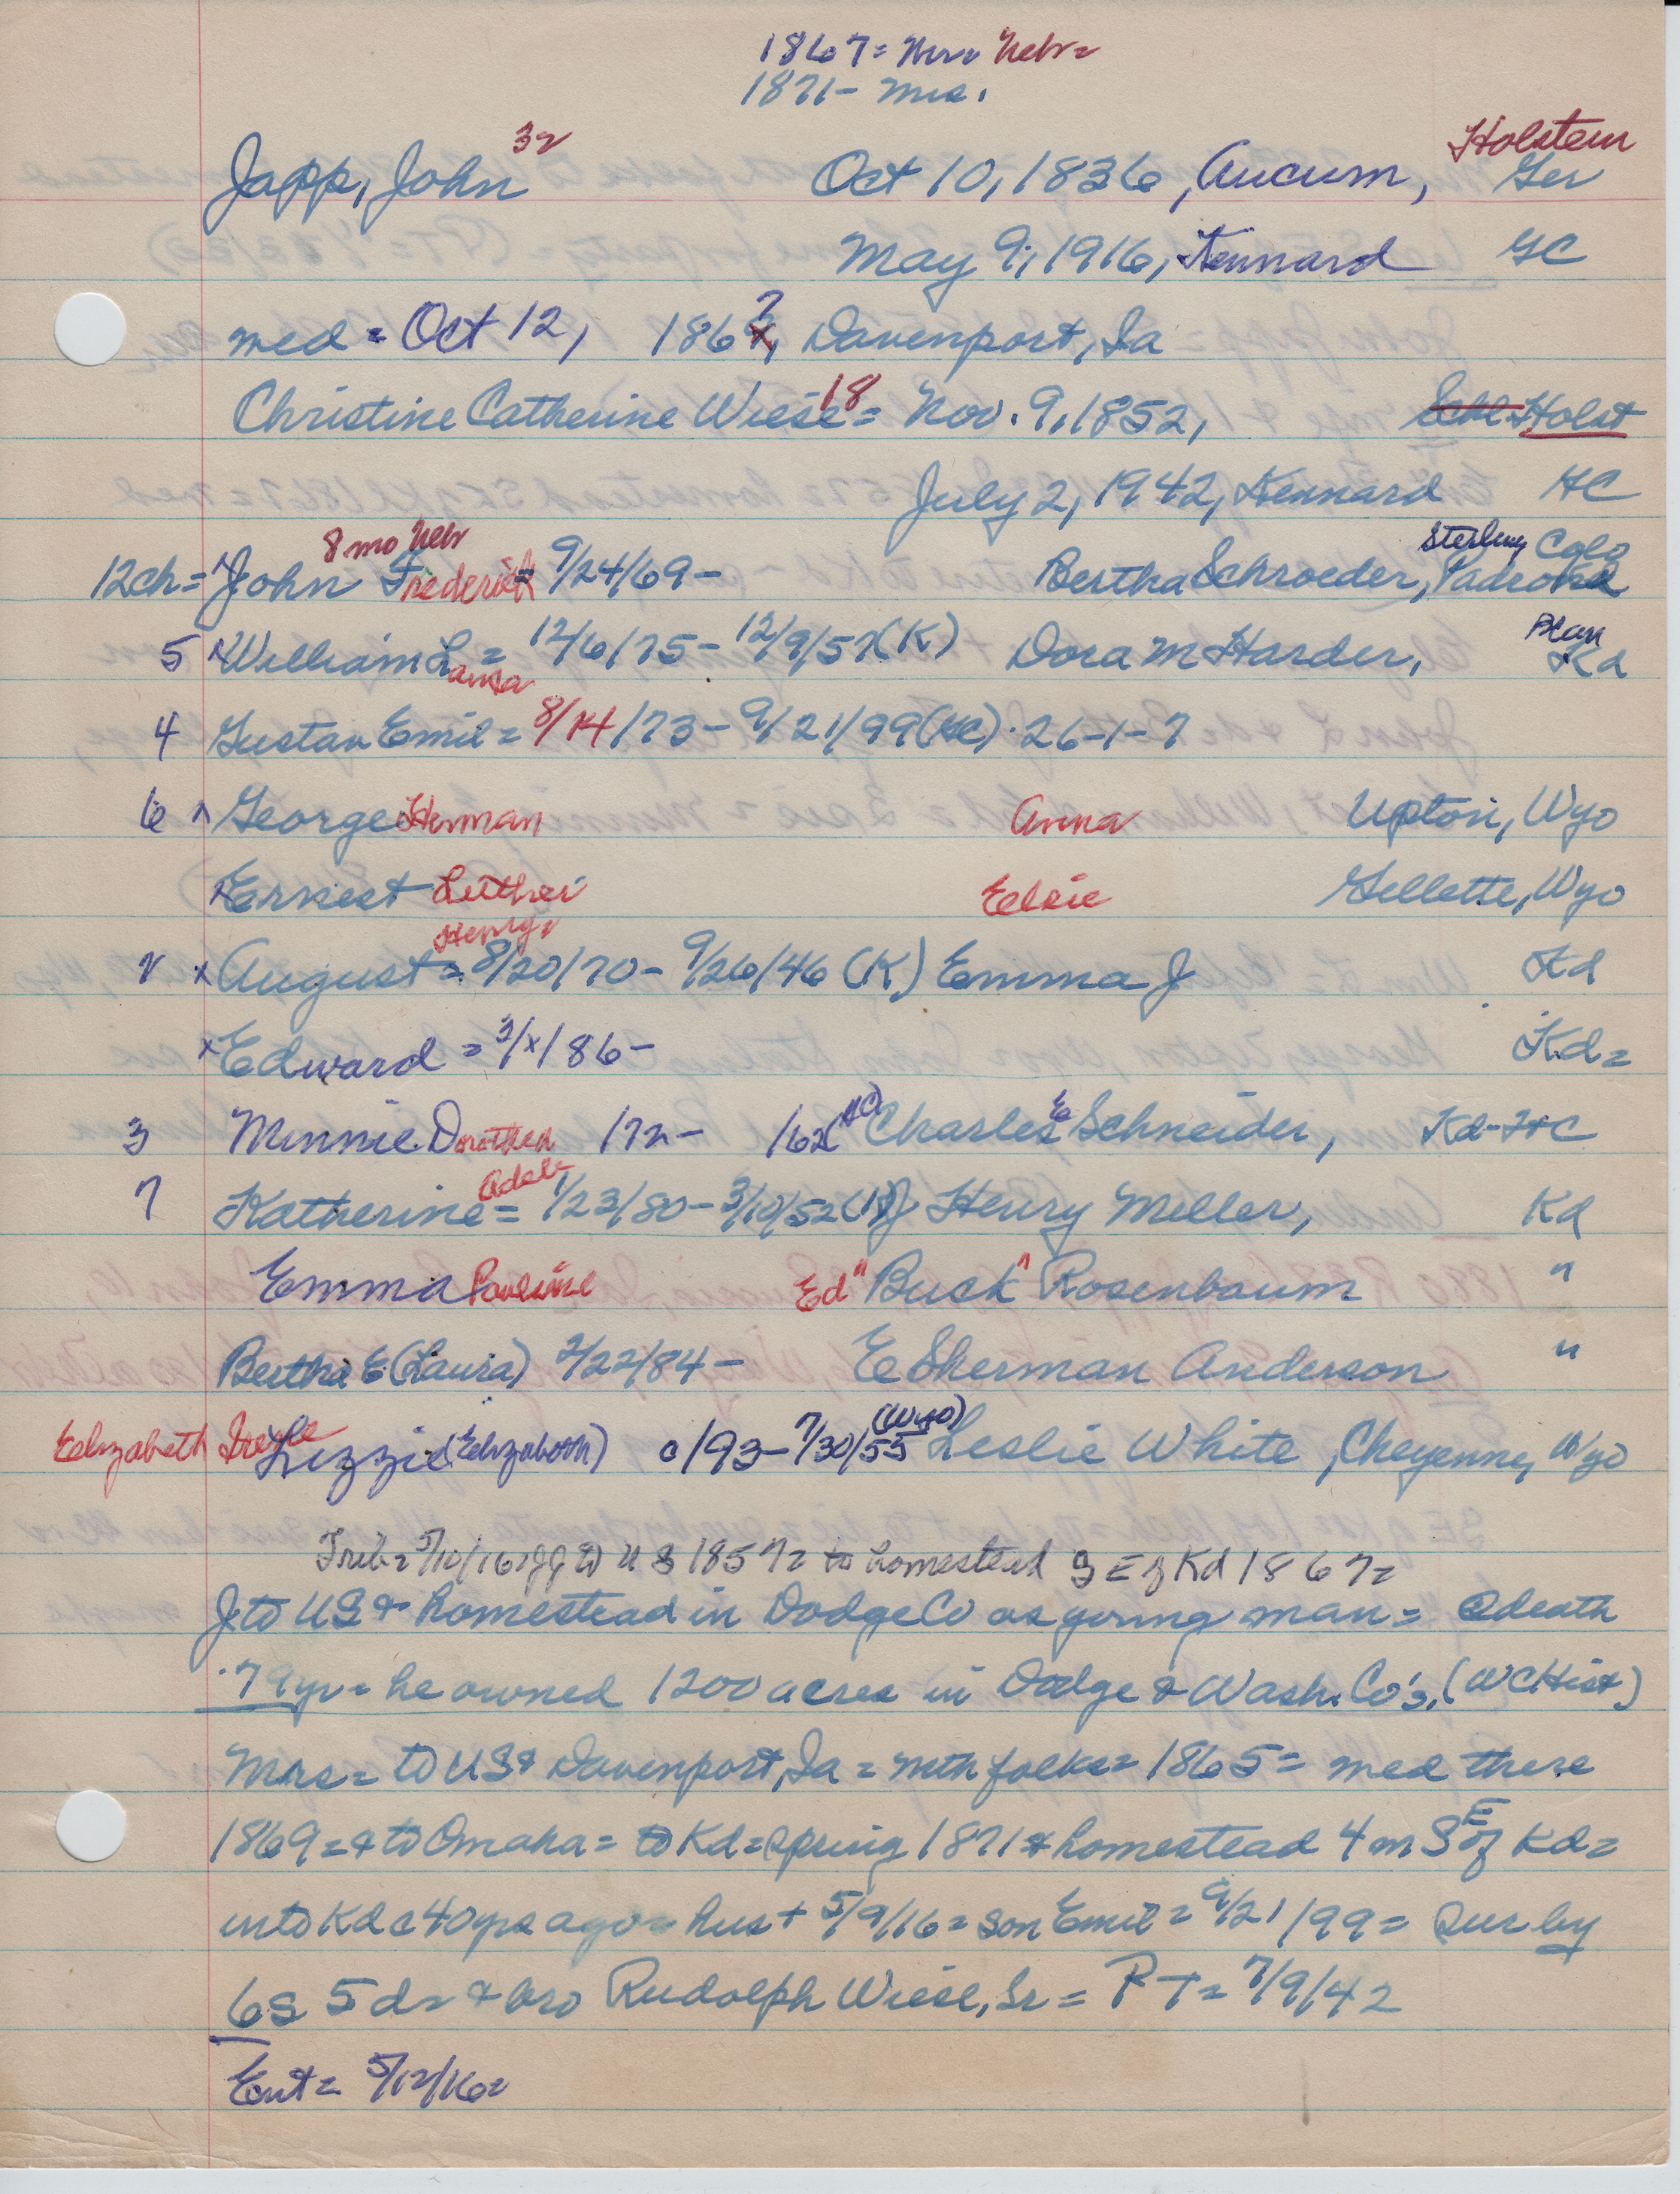 1867= Nebr=
1871- Mrs.
Japp, John 32 Oct 10, 1836, Aucum, Holstein Ger
May 9, 1916, Kennard GC
med = Oct 12, 186 ?, Davenport, Ia
Christine Catherine Wiese 18 = Nov. 9, 1852, Holst
July 2, 1942, Kennard HC
8 mo Nebr Sterling Colo
12ch= John Frederick = 9/24/69- Bertha Schroeder,
5 x William L = 12/6/75- 12/9/57(K) Dora M Harder, Kd
4 Gustav Emil = 8/14/73- 9/21/99(HC). 26-1-7
6 George Herman Anna Upton, Wyo
x Ernest Luther Elsie Gillette, Wyo
Henry=
2 x August = 8/20/70- 9/26/46 (K) Emma J Kd
x Edward = 3/x/86- Kd=
3 Minnie Dorothea /72- /62(HC) Charles E Schneider, Kd-HC
7 Katherine Adele = 1/23/80- 3/10/52(K) Henry Miller, Kd
Emma Pauline Ed "Buck" Rosenbaum "
Bertha E (Laura) 2/22/84- E Sherman Anderson "
Elizabeth Lizzie (Elizabeth) c/93- 7/30/55 (Wyo) Leslie White, Cheyenne, Wyo
Trib= 5/10/16= JJ to U S 1857= to homestead S E of Kd 1867=
J to US & homestead in Dodge Co as young man = @ death
79 yr= he owned 1200 acres in Dodge & Wash. Co's. (WC Hist)
Mrs= to US & Davenport, Ia = with folks= 1865= med there
1869= & to Omaha= to Kd= spring 1871 & homestead 4 m S E of Kd=
into Kd c 40 yrs ago= hus + 5/9/16= son Emil= 9/21/99= sur by
6s 5d= & bro Rudolph Wiese, Sr = PT= 7/9/42
Ent= 5/12/16=